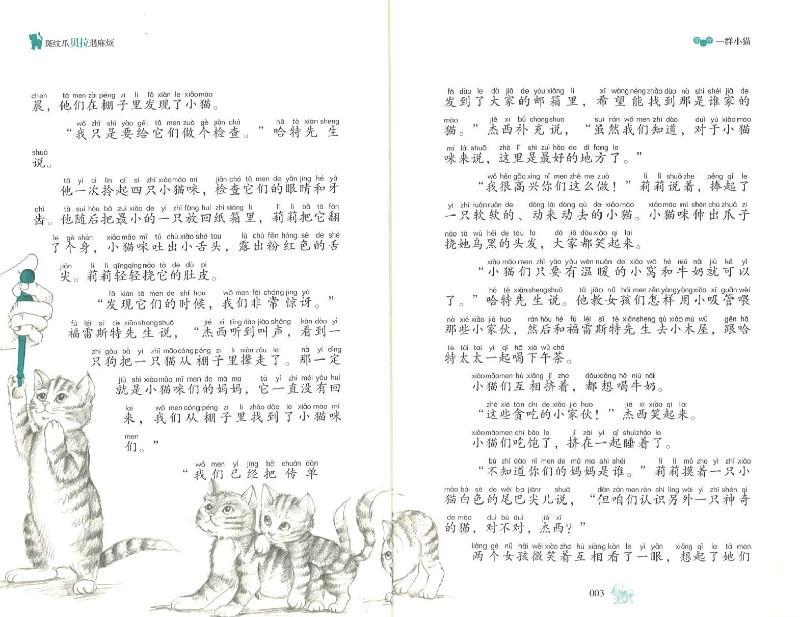 斑纹爪贝拉惹麻烦
晨，他们在棚子里发现了小猫。
“我只是要给它们做个检查。”哈特先生
说。
他一次拎起四只小猫咪，检查它们的眼睛和牙
齿。他随后把最小的一只放回纸箱里，莉莉把它翻
了个身，小猫咪吐出小舌头，露出粉红色的舌
尖。莉莉轻轻挠它的肚皮。
“发现它们的时候，我们非常惊讶。”
福雷斯特先生说，“杰西听到叫声，看到一
只狗把一只猫从棚子里撵走了。那一定
就是小猫咪们的妈妈，它一直没有回
来，我们从棚子里找到了小猫咪
们。”
“我们已经把传单
一群小猫
发到了大家的邮箱里，希望能找到那是谁家的
猫。”杰西补充说，“虽然我们知道，对于小猫
咪来说，这里是最好的地方了。”
“我很高兴你们这么做！”莉莉说着，捧起了
一只软软的、动来动去的小猫。小猫咪伸出爪子
挠她乌黑的头发，大家都笑起来。
“小猫们只要有温暖的小窝和牛奶就可以
了。”哈特先生说。他教女孩们怎样用小吸管喂
那些小家伙，然后和福雷斯特先生去小木屋，跟哈
特太太一起喝下午茶。
小猫们互相挤着，都想喝牛奶。
“这些贪吃的小家伙！”杰西笑起来。
小猫们吃饱了，挤在一起睡着了。
“不知道你们的妈妈是谁。”莉莉摸着一只小
猫白色的尾巴尖儿说，“但咱们认识另外一只神奇
的猫，对不对，杰西？”
两个女孩微笑着互相看了一眼，想起了她们
003